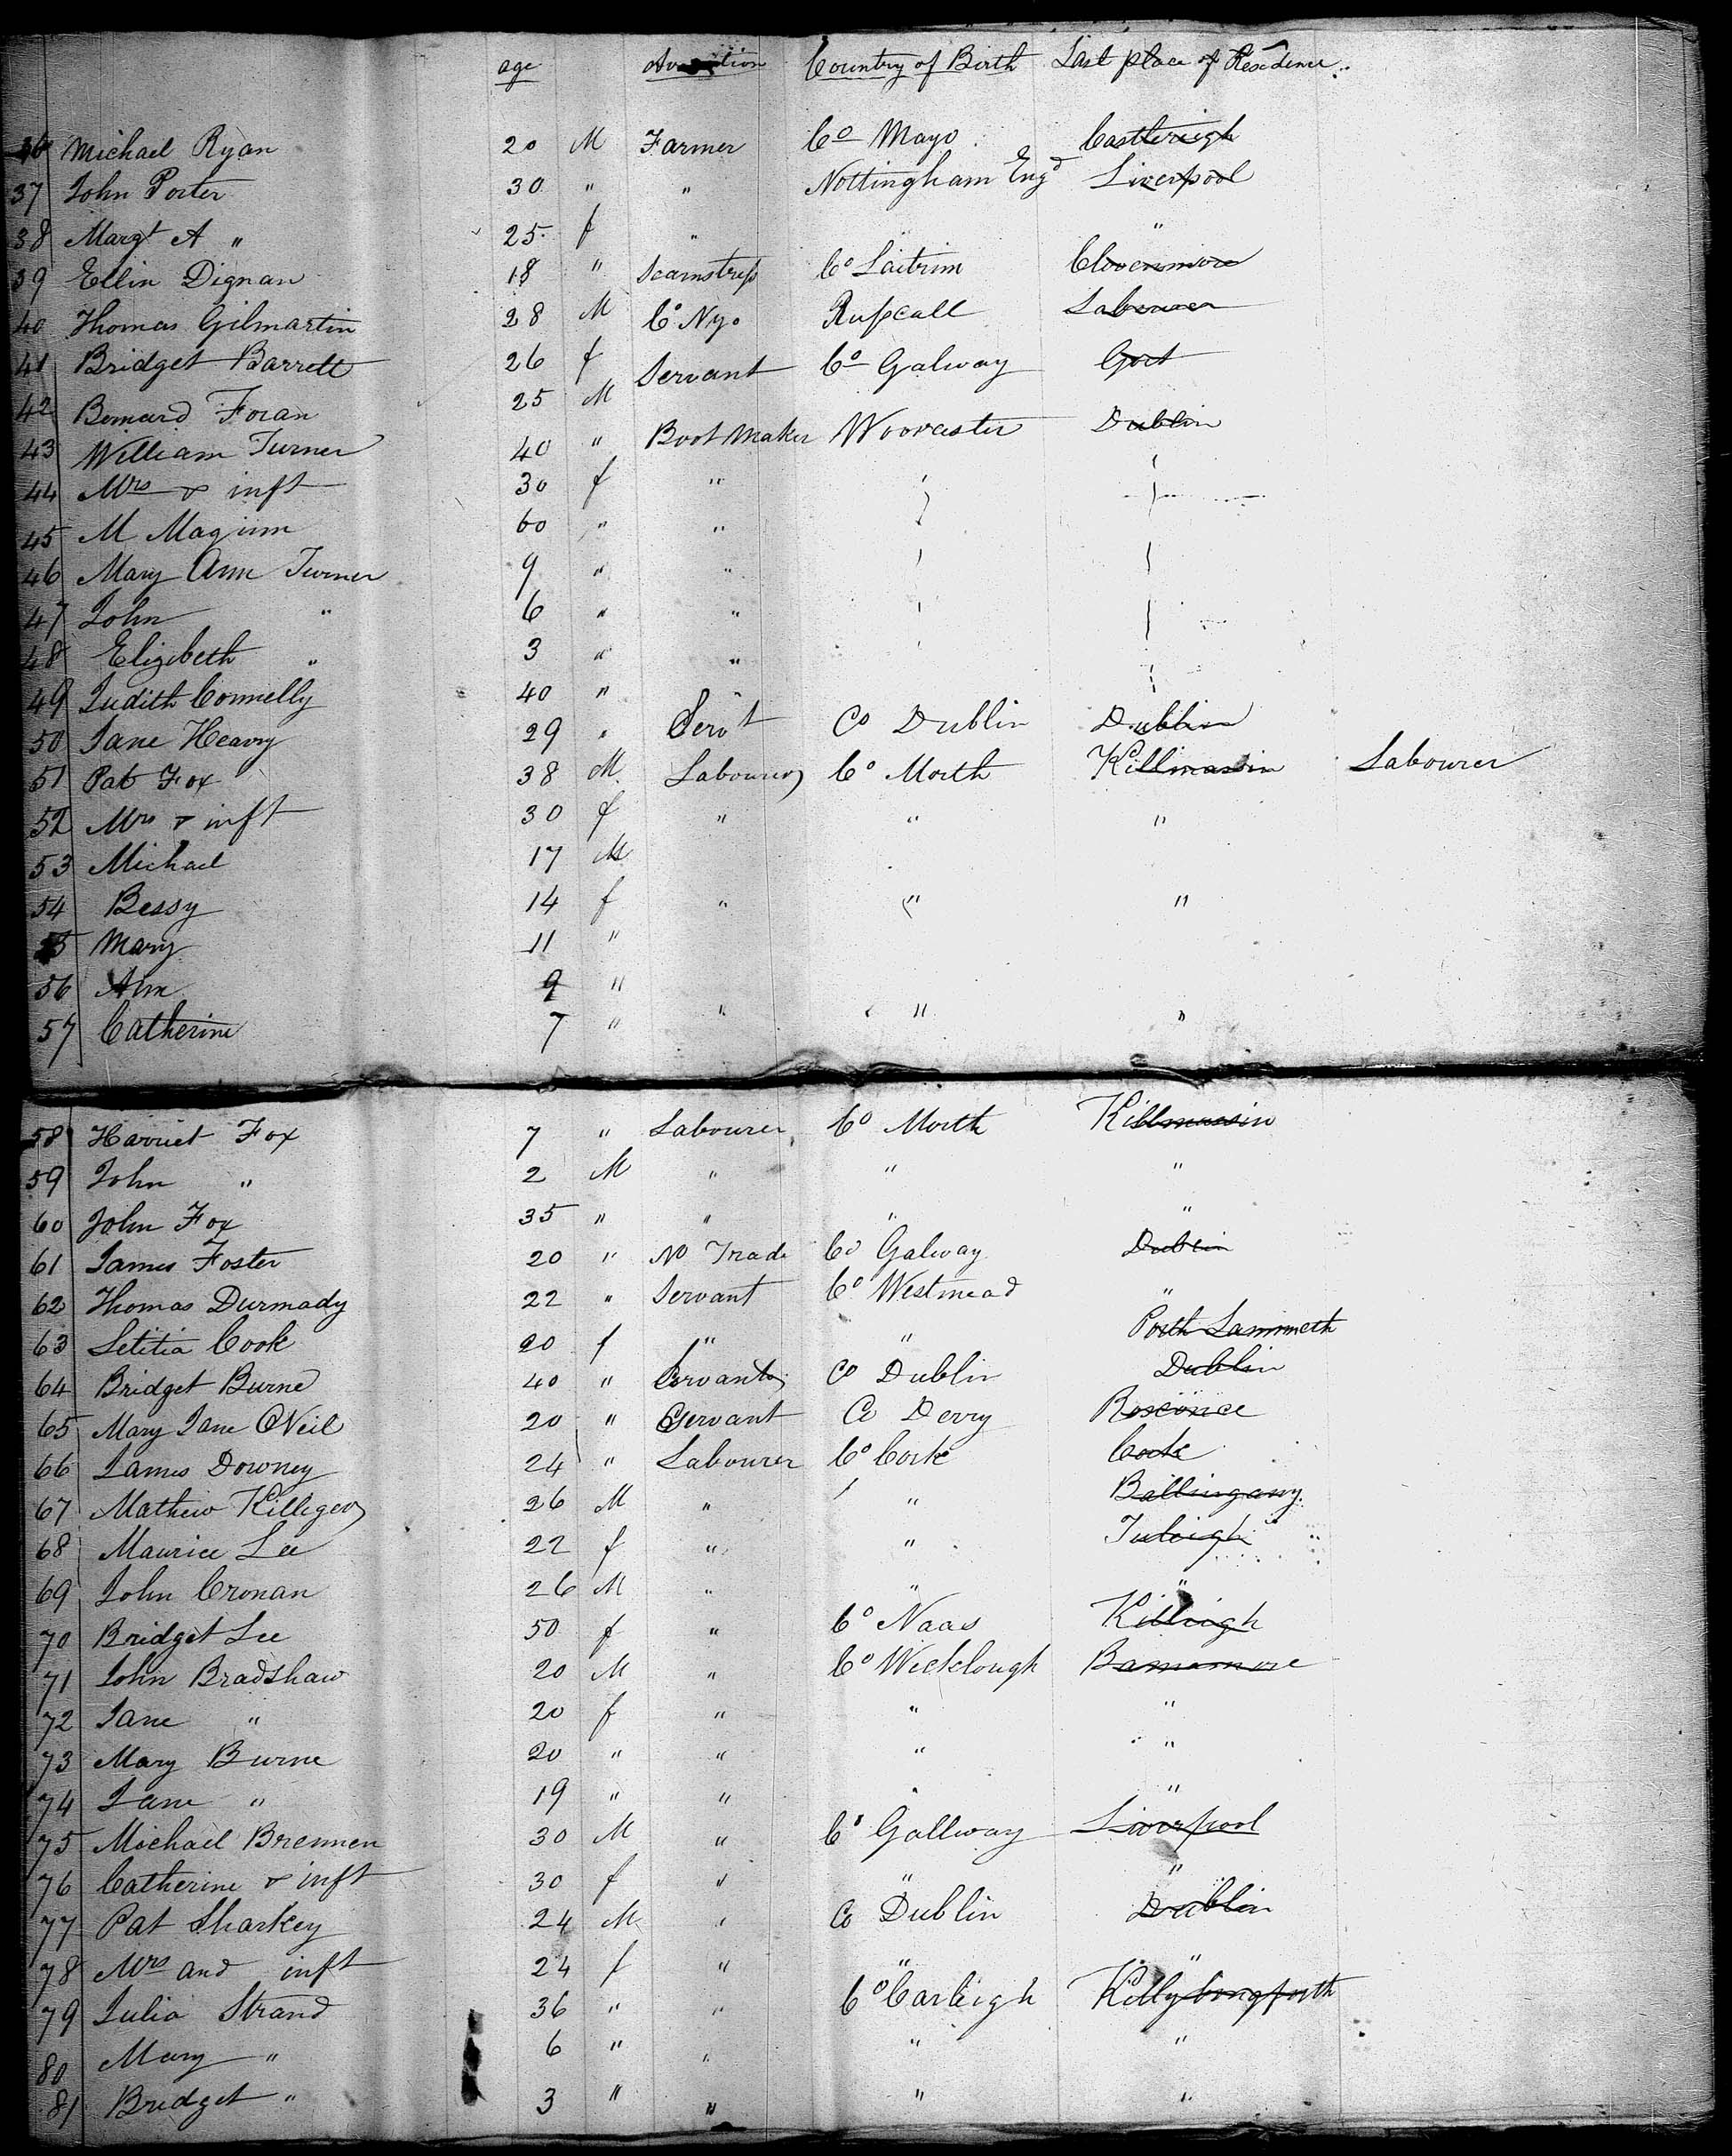 age Country of Birth Last place of Residence
36 Michael Ryan 20 M Farmer Co Mayo Castlereigh
37 John Porter 30 " " Nottingham Engd Liverpool
38 Margt A " 25 f " " "
39 Ellin Dignan 18 " Seamstress Co Laitrim Clovenmore
40 Thomas Gilmartin 28 M Co Nyo Russcall Labourer
41 Bridget Barrett 26 f Servant Co Galway Gort
42 Bernard Foran 25 M
43 William Turner 40 " Boot Maker Woorcaster Dublin
44 Mrs & inft 30 f "
45 M Maginn 60 " "
46 Mary Ann Turner 9 " "
47 John " 6 " "
48 Elizibeth " 3 " "
49 Judith Connelly 40 "
50 Jane Heavy 29 " Servt Co Dublin Dublin
51 Pat Fox 38 M Labourer Co Morth Killmassin Labourer
52 Mrs & inft 30 f " " "
53 Michael 17 M
54 Bessy 14 f " " "
55 Mary 11 "
56 Ann 9 "
57 Catherine 7 " " " "
58 Harriet Fox 7 " Labourer Co Morth Killmassin
59 John " 2 M " " "
60 John Fox 35 " " " "
61 James Foster 20 " No Trade Co Galway Dublin
62 Thomas Durmady 22 " Servant Co Westmead "
63 Letitia Cook 20 f " " Porth Lammeth
64 Bridget Burne 40 " Servant Co Dublin Dublin
65 Mary Jane ONeil 20 " Servant Co Derry Roscorice
66 James Downey 24 " Labourer Co Cork Cork
67 Mathew Killiger 26 M " " Ballingany
68 Maurice Lee 22 f " " Tuleigh
69 John Cronan 26 M " " "
70 Bridget Lee 50 f " Co Naas Killeigh
71 John Bradshaw 20 M " Co Wicklough Bamamore
72 Jane " 20 f " " "
73 Mary Burne 20 " " " "
74 Jane " 19 " " " "
75 Michael Brennen 30 M " Co Gallway Liverpool
76 Catherine & inft 30 f " " "
77 Pat Sharkey 24 M " Co Dublin Dublin
78 Mrs and inft 24 f " " "
79 Julia Strand 36 " " Co Carleigh Killybongforth
80 Mary " 6 " " " "
81 Bridget " 3 " " " "